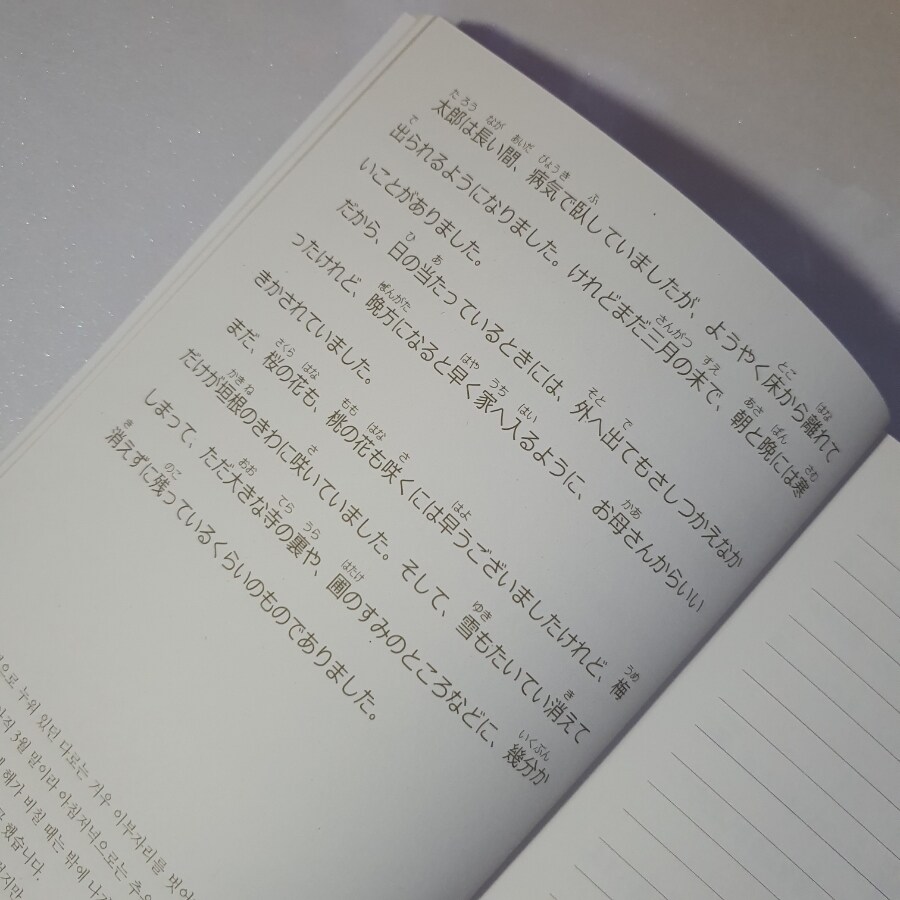 太郎は長い間、病気で臥していましたが、ようやく床から離れて
出られるようになりました。けれどまだ三月の末で、朝と晩には寒
いことがありました。
だから、日の当たっているときには、外へ出てもさしつかえなか
ったけれど、晩方になると早く家へ入るように、お母さんからいい
きかされていました。
まだ、桜の花も、桃の花も咲くには早うございましたけれど、梅
だけが垣根のきわに咲いていました。そして、雪もたいてい消えて
しまって、ただ大きな寺の裏や、圃のすみのところなどに、幾分か
消えずに残っているくらいのものでありました。
으로 누워 있던 다로는 겨우 이부자리를 벗어
3월 말이라 아침저녁으로는 추
해가 비칠 때는 밖에 나가
했습니다.